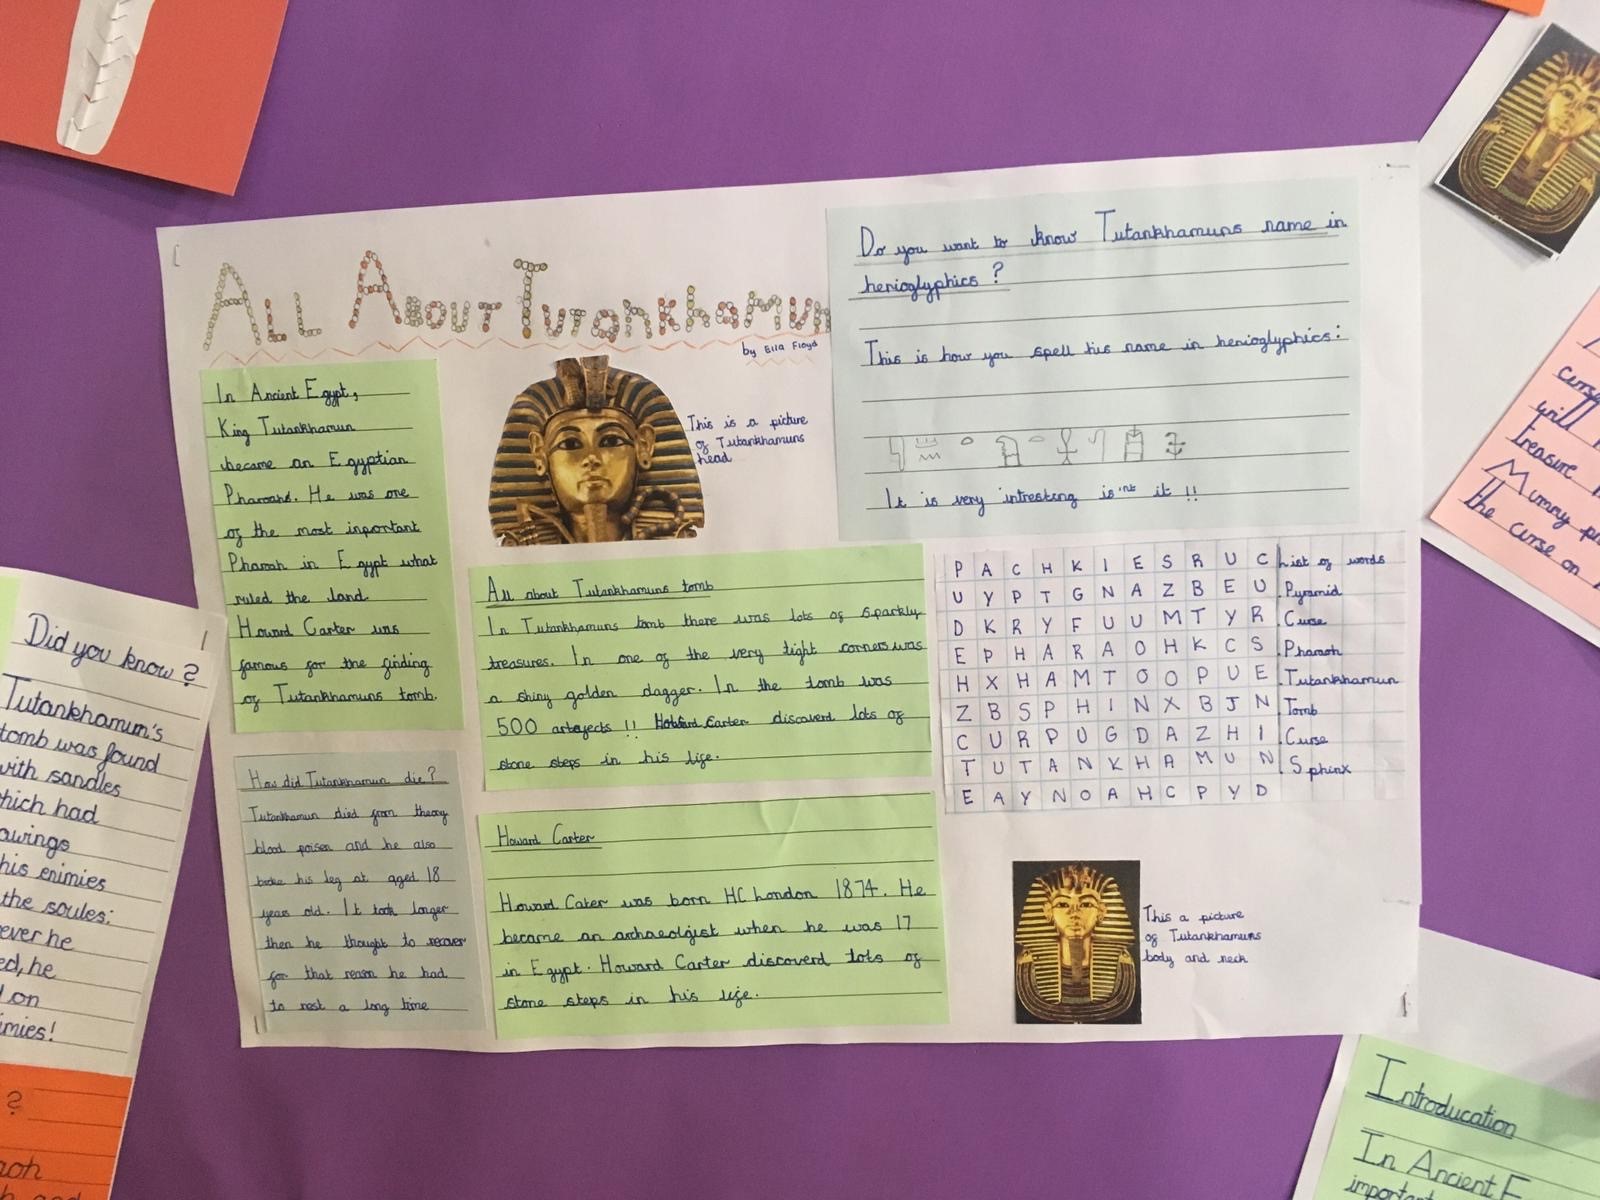 ALL ABOUT Tutankhamun
by Ella Floyd
In Ancient Egypt,
King Tutankhamun
became an Egyptian
Pharoahs. He was one
of the most inportant
Pharoah in Egypt what
ruled the land.
Howard Carter was
famous for the finding
of Tutankhamuns tomb.
This is a picture
of Tutankhamuns
head
Do you want to know Tutankhamuns name in
herioglyphics?
This is how you spell his name in herioglyphics:
It is very intresting is'nt it !!
All about Tutankhamuns tomb
In Tutankhamuns tomb there was lots of sparkly
treasures. In one of the very tight corners was
a shiny golden dagger. In the tomb was
500 artefects !! Howard Carter discoverd lots of
stone steps in his life.
P A C H K I E S R U C
U Y P T G N A Z B E U
D K R Y F U U M T Y R
E P H A R A O H K C S
H X H A M T O O P U E
Z B S P H I N X B J N
C U R P U G D A Z H I
T U T A N K H A M U N
E A Y N O A H C P Y D
List of words
Pyramid
Curse
Pharoah
Tutankhamun
Tomb
Curse
Sphinx
How did Tutankhamun die?
Tutankhamun died from theory
blood poisen and he also
broke his leg at aged 18
years old. It took longer
then he thought to recover
for that reson he had
to rest a long time
Howard Carter
Howard Cater was born HC London 1874. He
became an archaeolgist when he was 17
in Egypt. Howard Carter discoverd lots of
stone steps in his life.
This a picture
of Tutankhamuns
body and neck
Did you know?
Tutankhamun's
tomb was found
with sandles
which had
his enimies
the soules:
he
on
?
curse
will
Treasure
Mummy
the curse on
Introducation
In Ancient